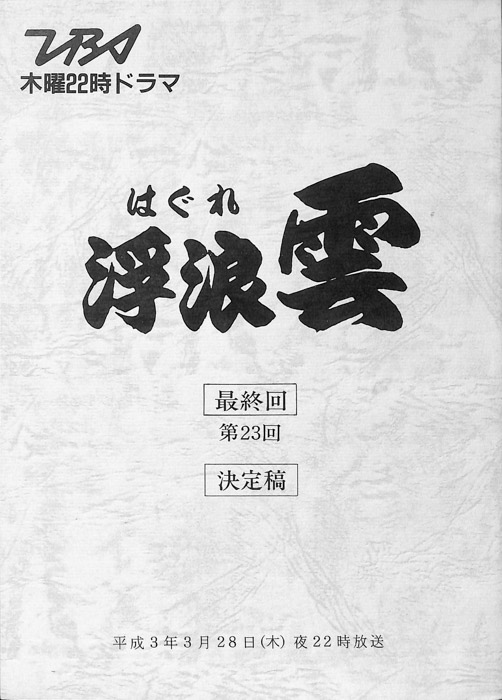 木曜22時ドラマ
はぐれ
浮浪雲
最終回
第23回
決定稿
平成3年3月28日(木) 夜22時放送